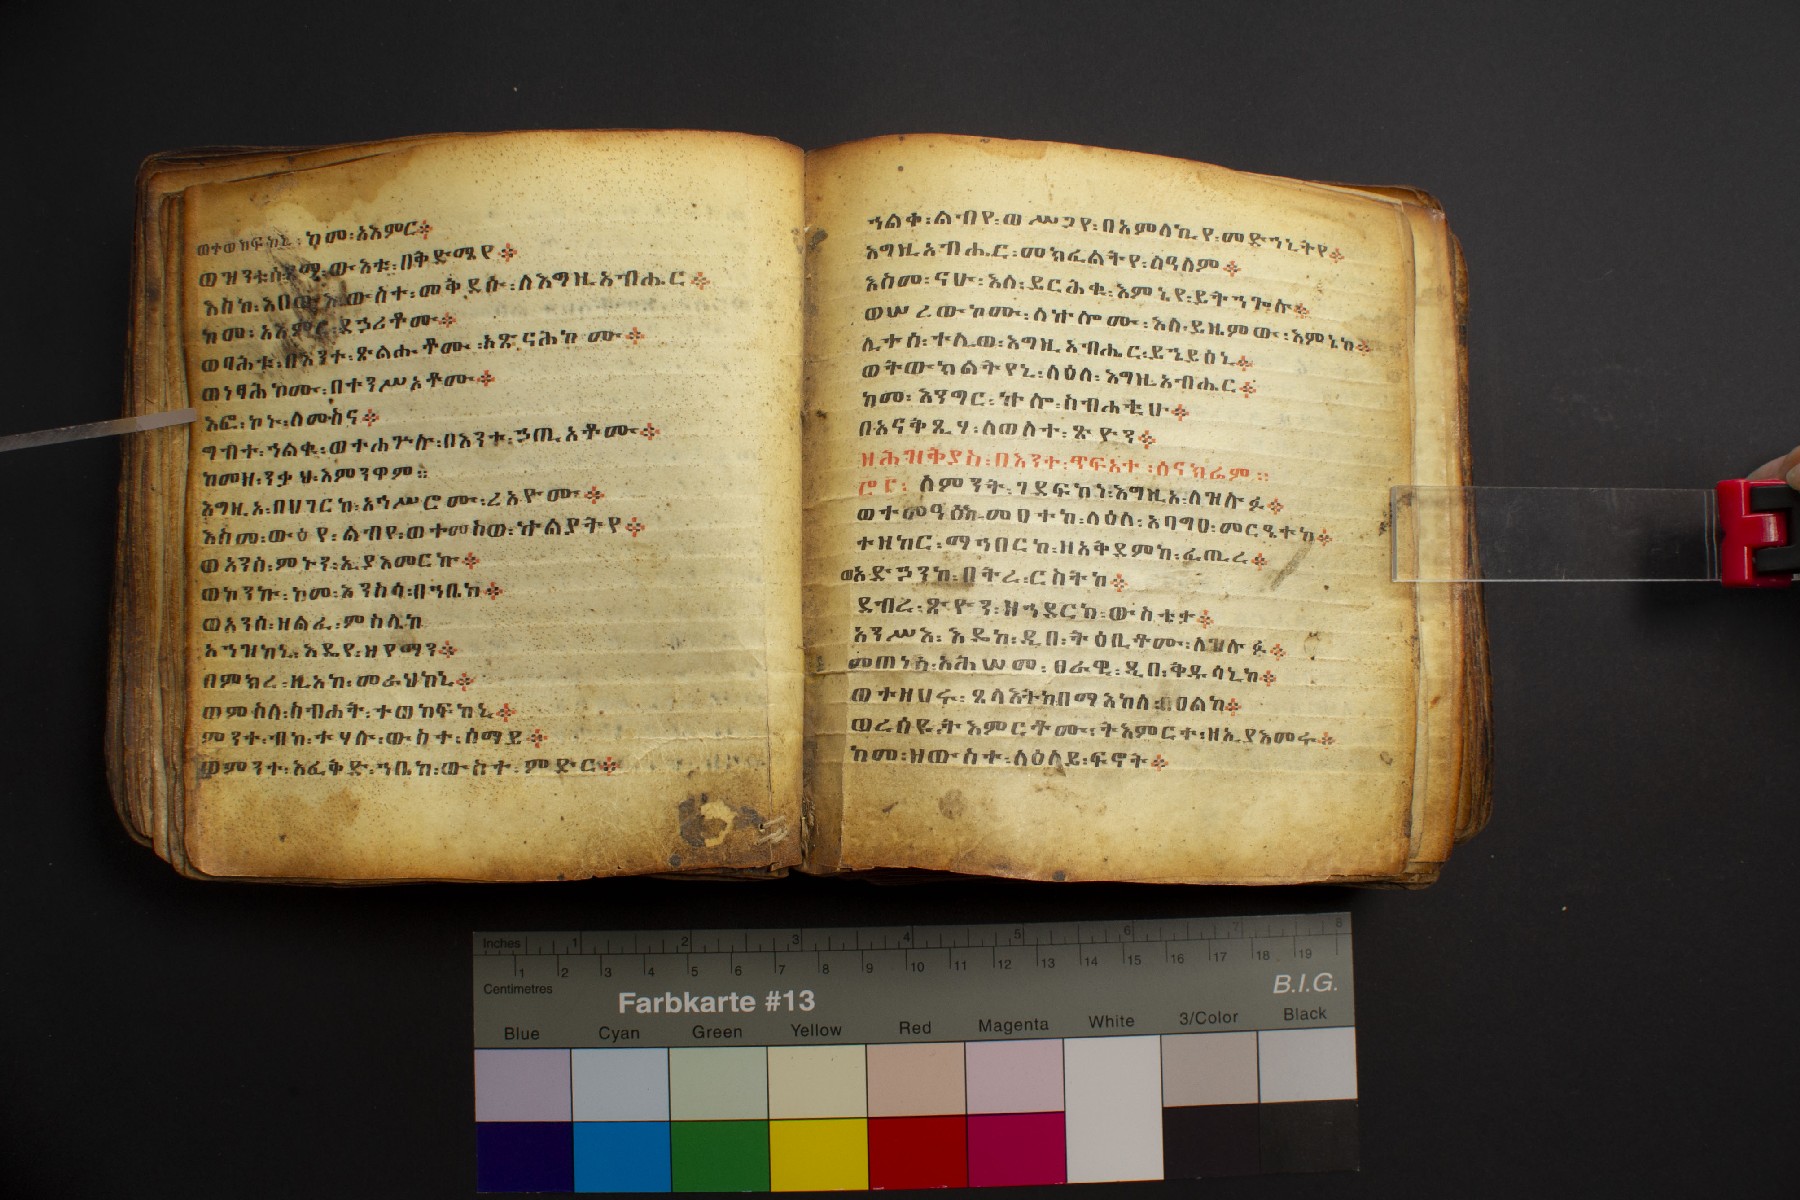 ወተወከፍከኒ፡ ከመ፡ አእምር፨
ወዝንቱሰ፡ ፃማ፡ ውእቱ፡ በቅድሜየ፨
እስከ፡ እበውእ፡ ውስተ፡ መቅደሱ፡ ለእግዚአብሔር፨
ከመ፡ አእምር፡ ደኃሪቶሙ፨
ወባሕቱ፡ በእንተ፡ ጽልሑቶሙ፡ አጽናሕከሙ፨
ወነፃሕኮሙ፡ በተንሥኦቶሙ፨
እፎ፡ ኮኑ፡ ለሙስና፨
ግብተ፡ ኀልቁ፡ ወተሐጕሉ፡ በእንተ፡ ኃጢአቶሙ፨
ከመዘ፡ ንቃህ፡ እምንዋም።
እግዚኦ፡ በሀገርከ፡ አኀሥሮሙ፡ ረአዮሙ፨
እስመ፡ ውዕየ፡ ልብየ፡ ወተመስወ፡ ኵልያትየ፨
ወአንሰ፡ ምኑን፡ ኢያእመርኩ፨
ወኮንኩ፡ ከመ፡ እንስሳ፡ በኀቤከ፨
ወአንሰ፡ ዘልፈ፡ ምስሌከ
አኀዝከኒ፡ እዴየ፡ ዘየማን፨
በምክረ፡ ዚአከ፡ መራህከኒ፨
ወምስለ፡ ስብሐት፡ ተወከፍከኒ፨
ምንተ፡ ብከ፡ ተሃሉ፡ ውስተ፡ ሰማይ፨
ወምንተ፡ እፈቅድ፡ ኀቤከ፡ ውስተ፡ ምድር፨
ኀልቀ፡ ልብየ፡ ወሥጋየ፡ በአምላኪየ፡ መድኀኒትየ፨
እግዚአብሔር፡ መክፈልትየ፡ ለዓለም፨
እስመ፡ ናሁ፡ እለ፡ ይርሕቁ፡ እምኔየ፡ ይትኀጐሉ፨
ወሠረውኮሙ፡ ለኵሎሙ፡ እለ፡ ይዜምው፡ እምኔከ፨
ሊተሰ፡ ተሊወ፡ እግዚአብሔር፡ ይኄይሰኒ፨
ወትውክልትየኒ፡ ላዕለ፡ እግዚአብሔር፨
ከመ፡ እንግር፡ ኵሎ፡ ስብሐቲሁ፨
በአናቅጺሃ፡ ለወለተ፡ ጽዮን፨
ዘሕዝቅያስ፡ በእንተ፡ ጥፍአተ፡ ሰናክሬም።
፸፫፡ ለምንት፡ ገደፍከነ፡ እግዚኦ፡ ለዝሉፉ፨
ወተመዓዕከ፡ መዐተከ፡ ላዕለ፡ አባግዐ፡ መርዔተከ፨
ተዘከር፡ ማኅበርከ፡ ዘአቅደምከ፡ ፈጢረ፨
ወአድኃንከ፡ በትረ፡ ርስትከ፨
ደብረ፡ ጽዮን፡ ዘኀደርከ፡ ውስቴታ፨
አንሥእ፡ እዴከ፡ ዲበ፡ ትዕቢቶሙ፡ ለዝሉፉ፨
መጠነ፡ አሕሠመ፡ ፀራዊ፡ ዲበ፡ ቅዱሳኒከ፨
ወተዘሀሩ፡ ጸላእትከ በማእከለ፡ በዐልከ፨
ወረሰዩ፡ ትእምርቶሙ፡ ትእምርተ፡ ዘኢያእመሩ፨
ከመ፡ ዘውስተ፡ ላዕላይ፡ ፍኖት፨
Inches 1 2 3 4 5 6 7 8
1 2 3 4 5 6 7 8 9 10 11 12 13 14 15 16 17 18 19
Centimetres
Farbkarte #13
B.I.G.
Blue Cyan Green Yellow Red Magenta White 3/Color Black